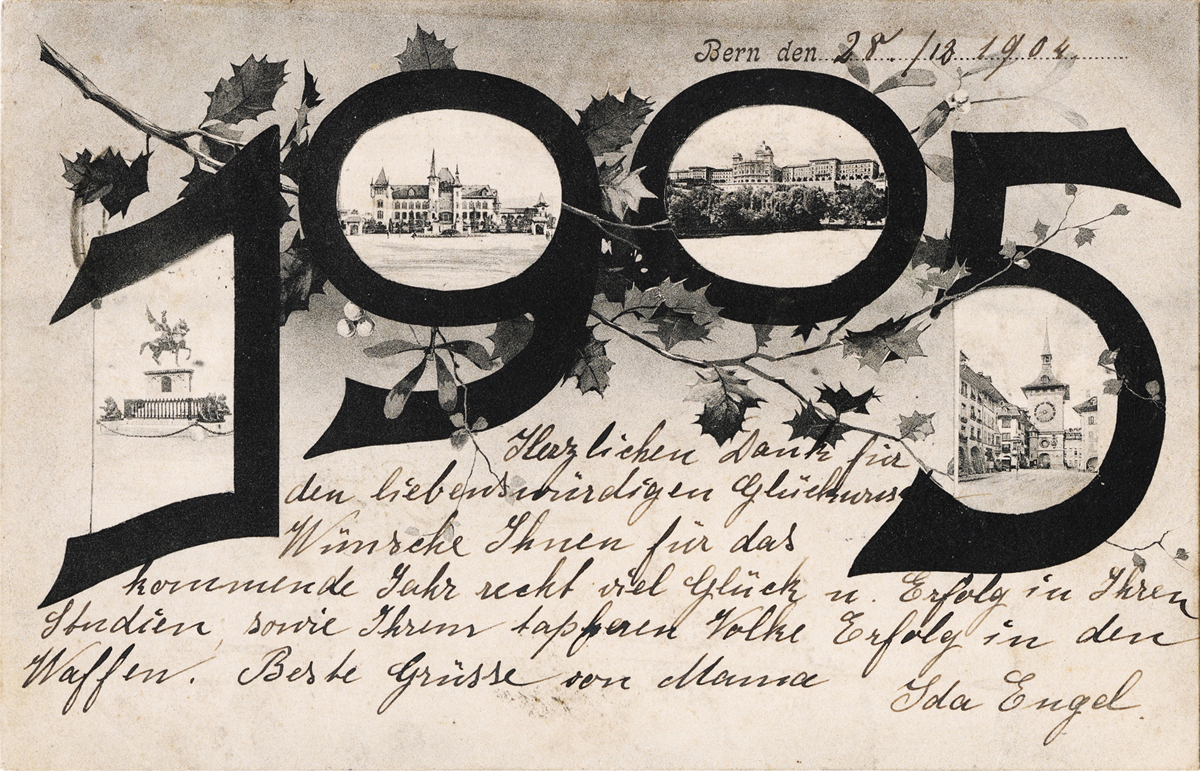 Bern den 28./12 1904.
1905
Herzlichen Dank für
den liebenswürdigen Glückwunsch
Wünsche Ihnen für das
kommende Jahr recht viel Glück u. Erfolg in Ihren
Studien, sowie Ihrem tapferen Volke Erfolg in den
Waffen. Beste Grüsse von Mama
Ida Engel.